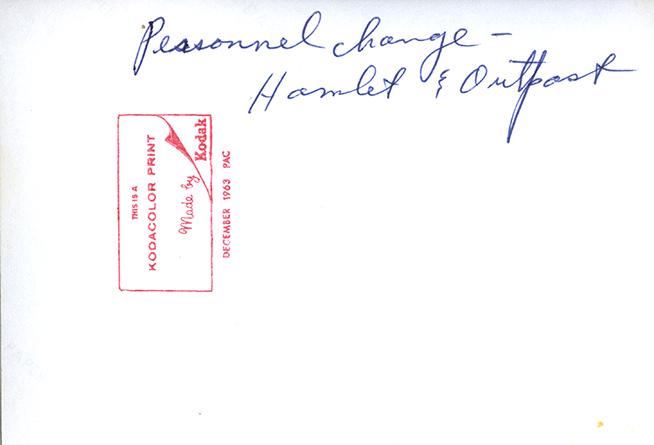 Personnel change -
Hamlet & Outpost
THIS IS A
KODACOLOR PRINT
Made by
Kodak
DECEMBER 1963 PAC